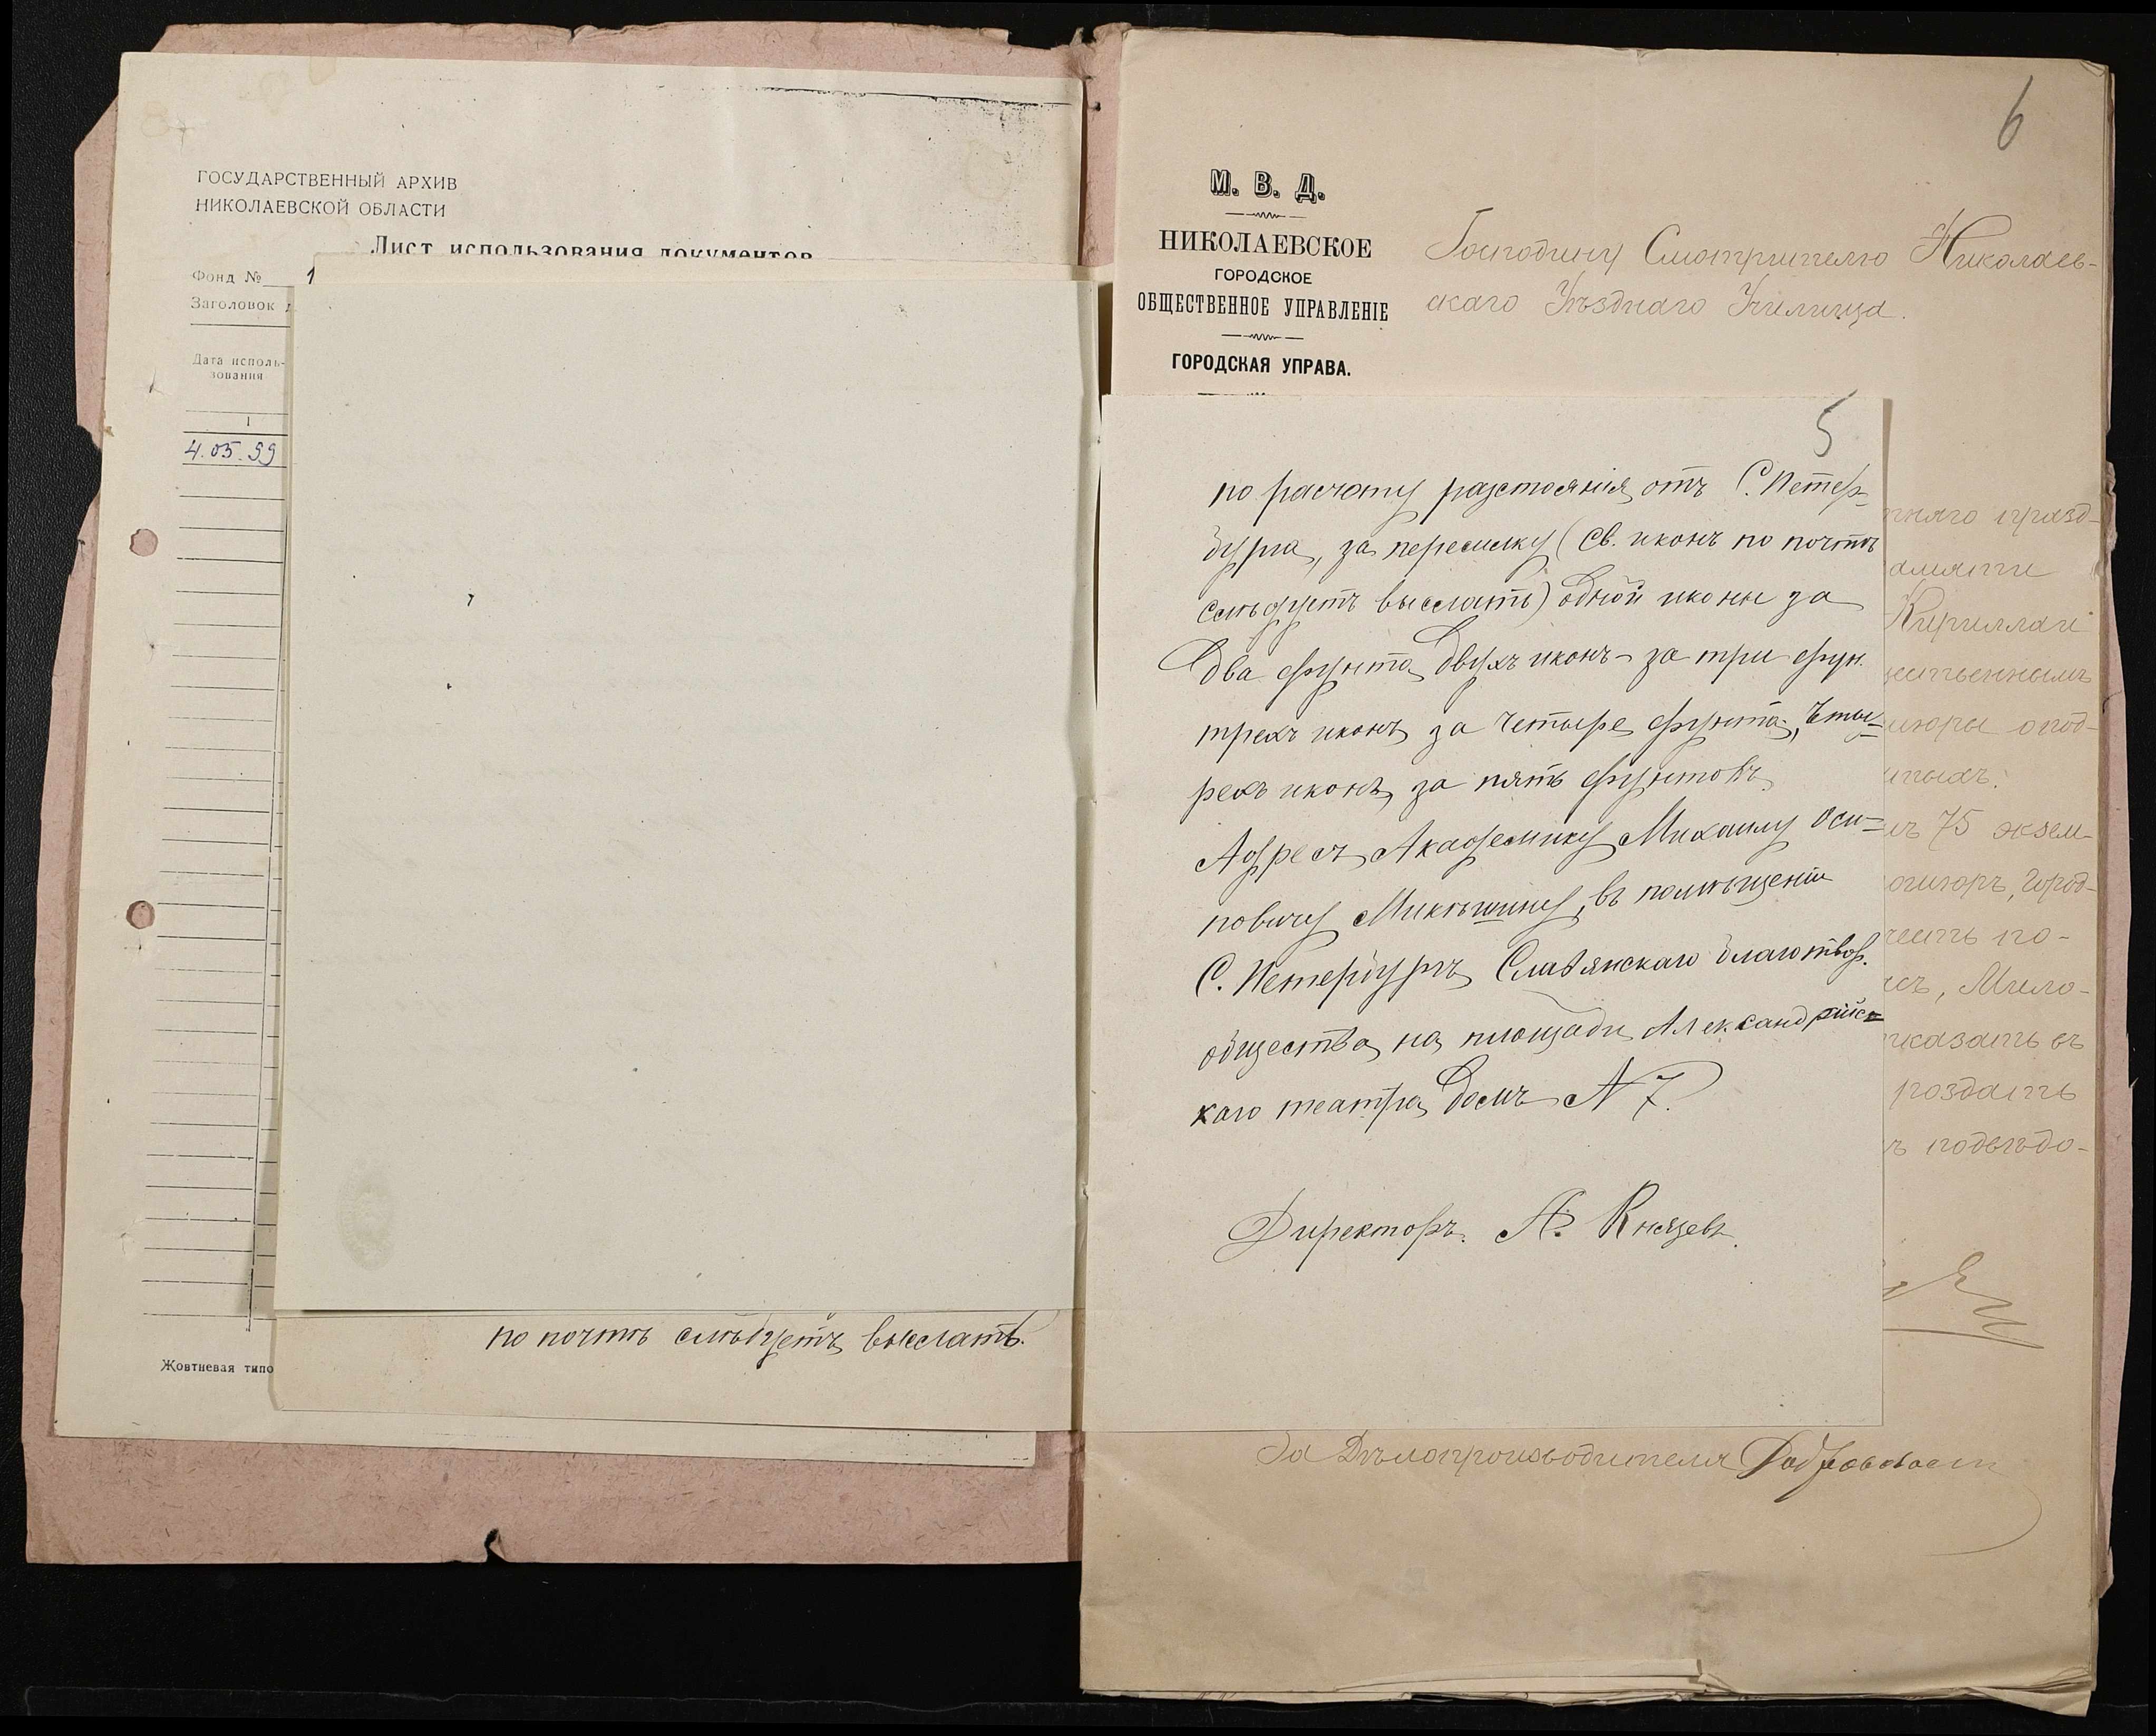 ГОСУДАРСТВЕННЫЙ АРХИВ
НИКОЛАЕВСКОЙ ОБЛАСТИ
Лист использования документов
Фонд № 1
Заголовок
Дата исполь-
зования
1
4.05.99
Жовтневая типо
по почтѣ слѣдуетъ выслать.
6
М. В. Д.
НИКОЛАЕВСКОЕ
ГОРОДСКОЕ
ОБЩЕСТВЕННОЕ УПРАВЛЕНІЕ
ГОРОДСКАЯ УПРАВА.
Господину Смотрителю Николаев-
скаго Уѣзднаго Училища.
5
по расчоту разстоянія отъ С. Петер-
бурга, за пересылку (св. иконъ по почтѣ
слѣдуетъ выслать) одной иконы за
два фунта, двухъ иконъ - за три фун.
трехъ иконъ, за четыре фунта, четы-
рехъ иконъ, за пять фунтовъ.
Адресъ, Академику Михаилу Оси-
повичу Микѣшину, въ помѣщеніи
С. Петербургъ Славянскаго благотвор.
общества, на площади Александрійс-
каго театра, домъ N 7.
Директоръ. А. Князевъ.
тняго празд-
амяти
Кирилла и
опод-
75 экзем-
город-
по-
Мило-
казать въ
роздать
подвѣдо-
За Дѣлопроизводителя